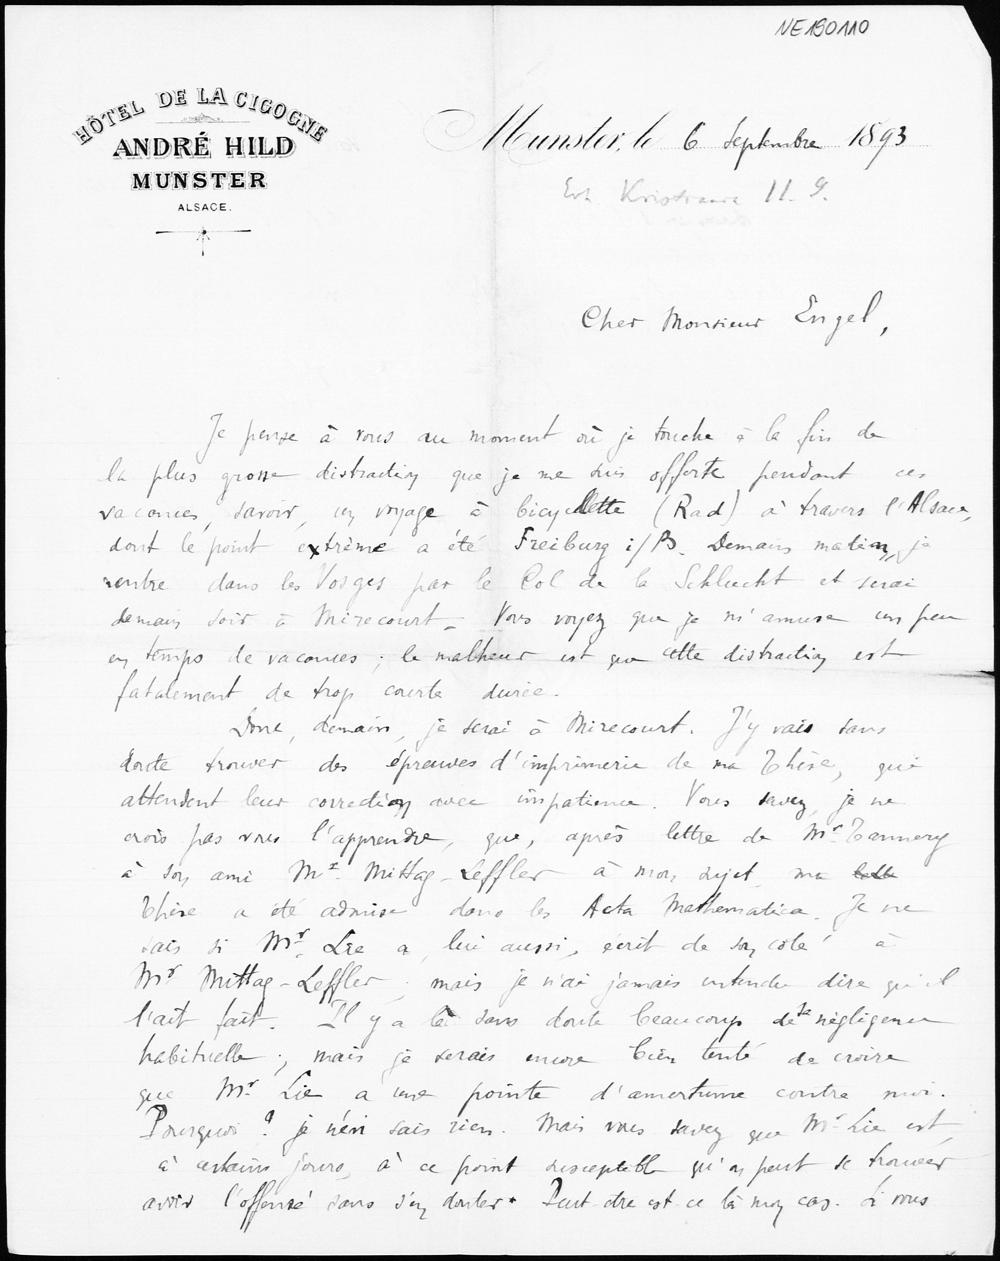 NE150110
HÔTEL DE LA CIGOGNE
ANDRÉ HILD
MUNSTER
ALSACE.
Munster, le 6 Septembre 1893
11. 9.
Cher Monsieur Engel,
Je pense à vous au moment où je touche à la fin de
la plus grosse distraction que je me suis offerte pendant ces
vacances, savoir, un voyage à bicyclette (Rad) à travers l'Alsace,
dont le point extrême a été Freiburg i/B. Demain matin, je
rentre dans les Vosges par le Col de la Schlucht et serai
demain soir à Mirecourt - Vous voyez que je m'amuse un peu
en temps de vacances ; le malheur est que cette distraction est
fatalement de trop courte durée.
Donc, demain, je serai à Mirecourt. J'y vais sans
doute trouver des épreuves d'imprimerie de ma Thèse, qui
attendent leur correction avec impatience. Vous savez, je ne
crois pas vous l'apprendre, que, après lettre de Mr. Tannery
à son ami Mr. Mittag-Leffler à mon sujet, ma
Thèse a été admise dans les Acta Mathematica. Je ne
sais si Mr. Lie a, lui aussi, écrit de son côté à
Mr Mittag-Leffler ; mais je n'ai jamais entendu dire qu'il
l'ait fait. Il y a là sans doute beaucoup de sa négligence
habituelle ; mais je serais encore bien tenté de croire
que Mr. Lie a une pointe d'amertume contre moi.
Pourquoi ? je n'en sais rien. Mais vous savez que Mr Lie est,
à certains jours, à ce point susceptible qu'on peut se trouver
avoir l'offensé sans s'en douter. Peut-être est-ce là mon cas. Si vous